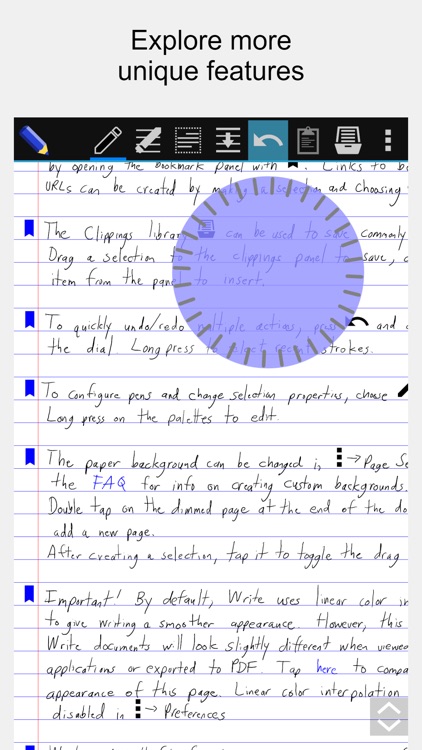 Explore more
unique features
by opening the Bookmark panel with . Links to
URLs can be created by making a selection and choosing
The Clippings library can be used to save commonly
Drag a selection to the clippings panel to save,
item from the panel to insert.
To quickly undo/redo multiple actions, press and
the dial. Long press to select recent strokes.
To configure pens and change selection properties, choose
Long press on the palettes to edit.
The paper background can be changed in → Page Se
the FAQ for info on creating custom backgrounds.
Double tap on the dimmed page at the end of the do
add a new page.
After creating a selection, tap it to toggle the drag
Important! By default, Write uses linear color in
to give writing a smoother appearance. However, this
Write documents will look slightly different when viewed
applications or exported to PDF. Tap here to compa
appearance of this page. Linear color interpolation
disabled in → Preferences